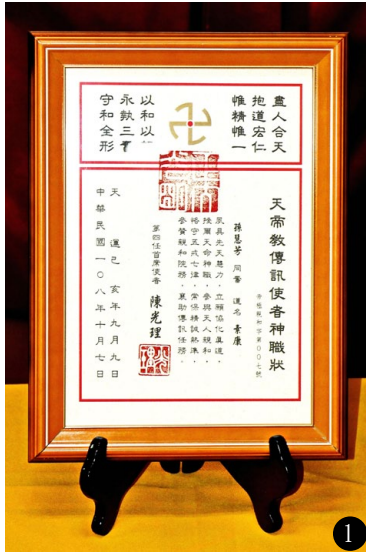 盡人合天
抱道宏仁
惟精惟一
以和以
永執三
守和全形
天帝教傳訊使者神職狀
親和字第００七號
孫慧芳 同奮 道名 素康
夙具先天慧力・立願協化真道・
授爾天命神職・參與天人親和・
恪守五戒七律・常保精誠熱準・
參贊親和院務・襄助傳訊任務・
第四任首席使者 陳光理
天運己亥年九月九日
中華民國一○八年十月七日
1